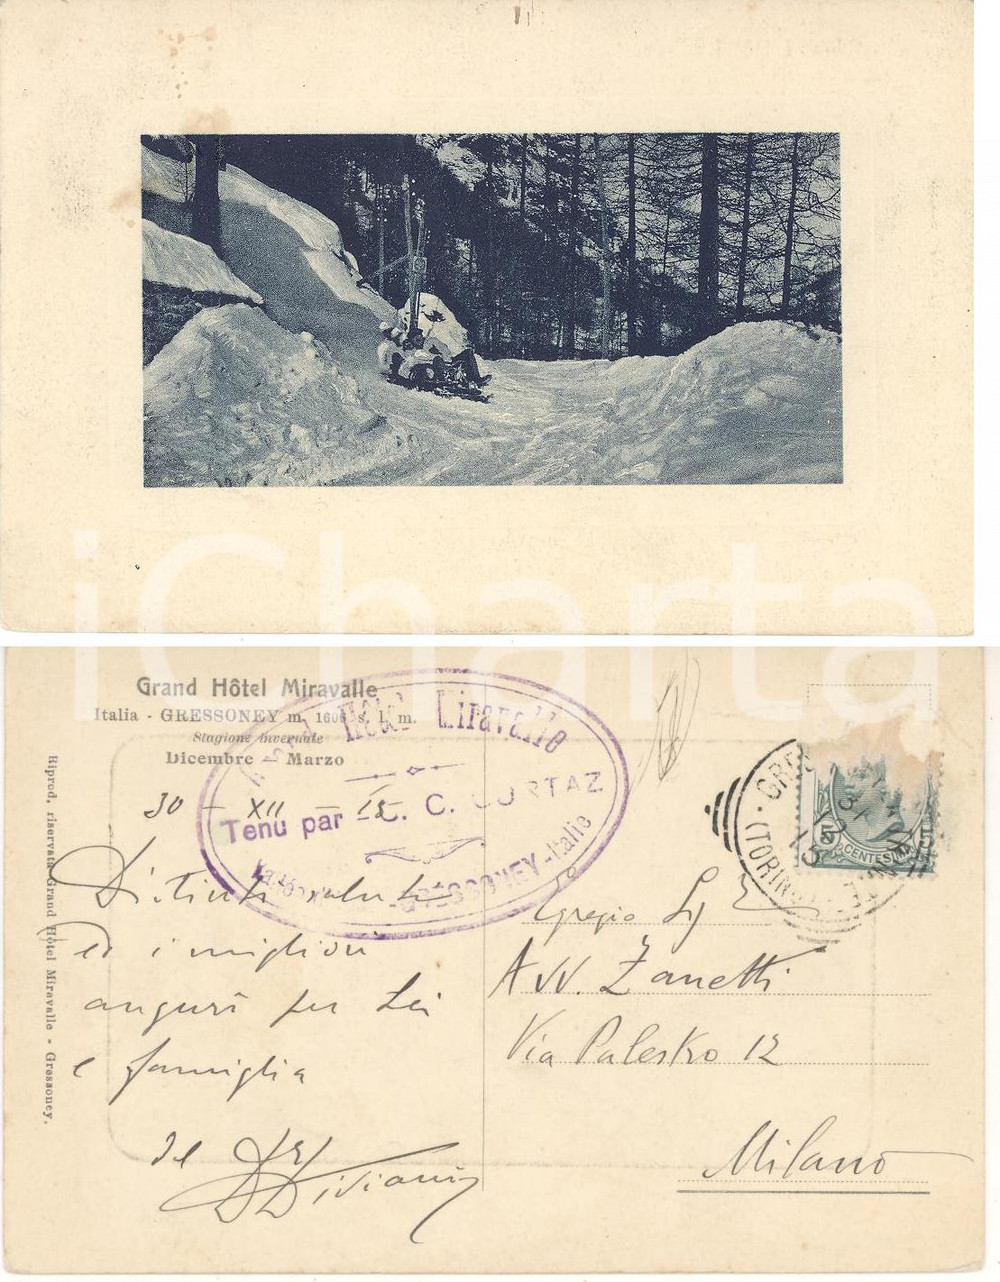 iCharta
Grand Hôtel Miravalle
Italia - GRESSONEY m. 1606 s. l. m.
Stagione invernale
Dicembre — Marzo
Hôtel Miravalle
Tenu par - C. C. CURTAZ
GRESSONEY - Italie
30 - XII - 15
Distinti saluti
ed i migliori
auguri per Lei
e famiglia
Riprod. riservata Grand Hôtel Miravalle - Gressoney.
(TORINO)
5 CENTESIMI 5
Egregio Sig
Avv. Zanetti
Via Palestro 12
Milano